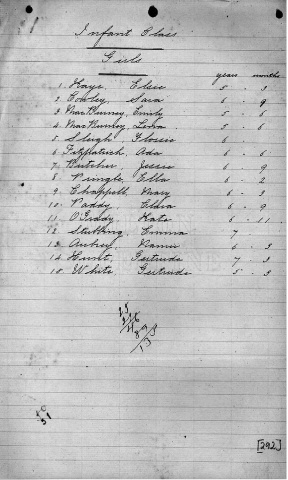 Infant Class
Girls
years months
1. Hays, Elsie 5 . 3
2. Cowley, Sara 6 . 9
3. MacBurney, Emily 5 . 6
4. MacBurney, Lena 5 . 6
5. Sleigh, Flossie 6
6. Fitzpatrick, Ada 6 . 6
7. Butcher, Jessie 6 . 9
8. Pringle, Ella 6 . 2
9. Chappell, Mary 6 . 3
10. Paddy, Clara 6 . 9
11. O'Grady, Kate 6 . 11
12. Stutting, Emma 7 .
13. 6 . 3
14. Hunt, Gertrude 7 . 3
15. White, Gertrude 5 . 3
51
[292]